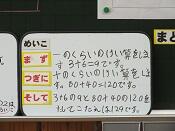 めいこ
一のくらいのけい算をします
まず 3+6=9です。
つぎに 十のくらいのけい算をします
80+40=120です。
そして 3+6の9と80+40の120を
たしてこたえは129です。
まと